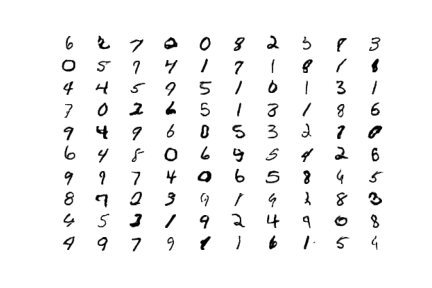 6 2 7 0 0 8 2 3 8 3
0 5 7 4 1 7 1 8 1 8
4 4 5 9 5 1 0 1 3 1
7 0 2 6 5 1 3 1 8 6
9 4 9 6 0 5 3 2 7 0
6 4 8 0 6 9 5 4 2 6
9 9 7 4 0 6 5 8 4 5
8 7 2 3 9 1 9 2 8 3
4 5 3 1 9 2 4 9 0 8
4 9 7 9 1 1 6 1 5 4